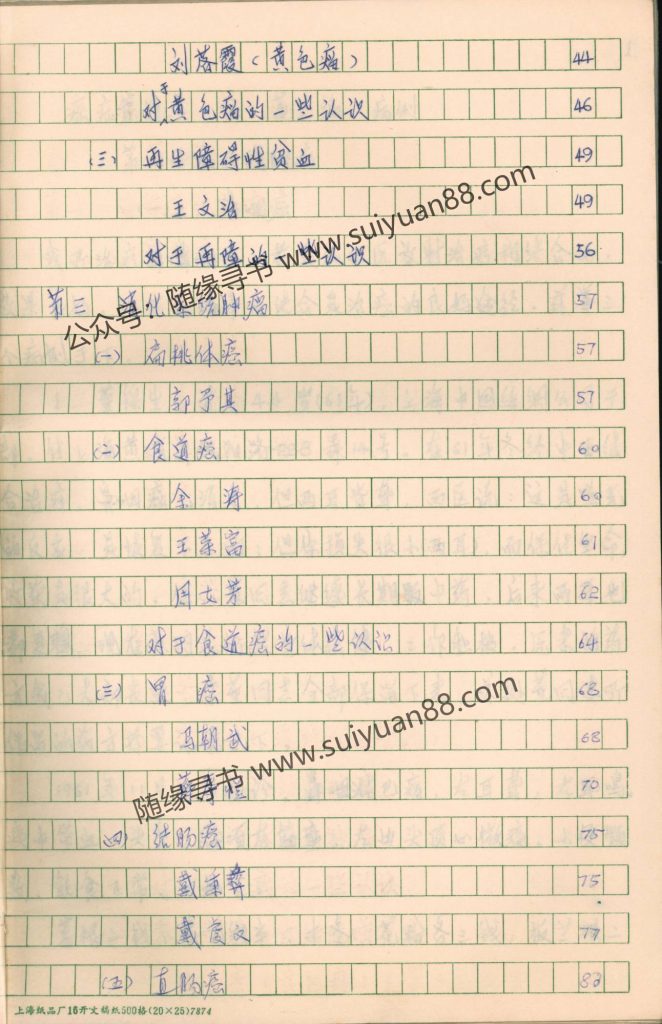 刘蓉霞（黄色瘤） 44
对于黄色瘤的一些认识 46
（三）再生障碍性贫血 49
王文治 49
对于再障的一些认识 56
第三 消化系统肿瘤 57
（一）扁桃体癌 57
郭予其 57
（二）食道癌 60
余涛 60
王荣富 61
周文芳 62
对于食道癌的一些认识 64
（三）胃癌 68
马朝武 68
70
四）结肠癌 75
戴 彝 75
戴虞文 77
（五）直肠癌 82
上海纸品厂16开文稿纸500格(20×25)7874
公众号：随缘寻书 www.suiyuan88.com
随缘寻书 www.suiyuan88.com